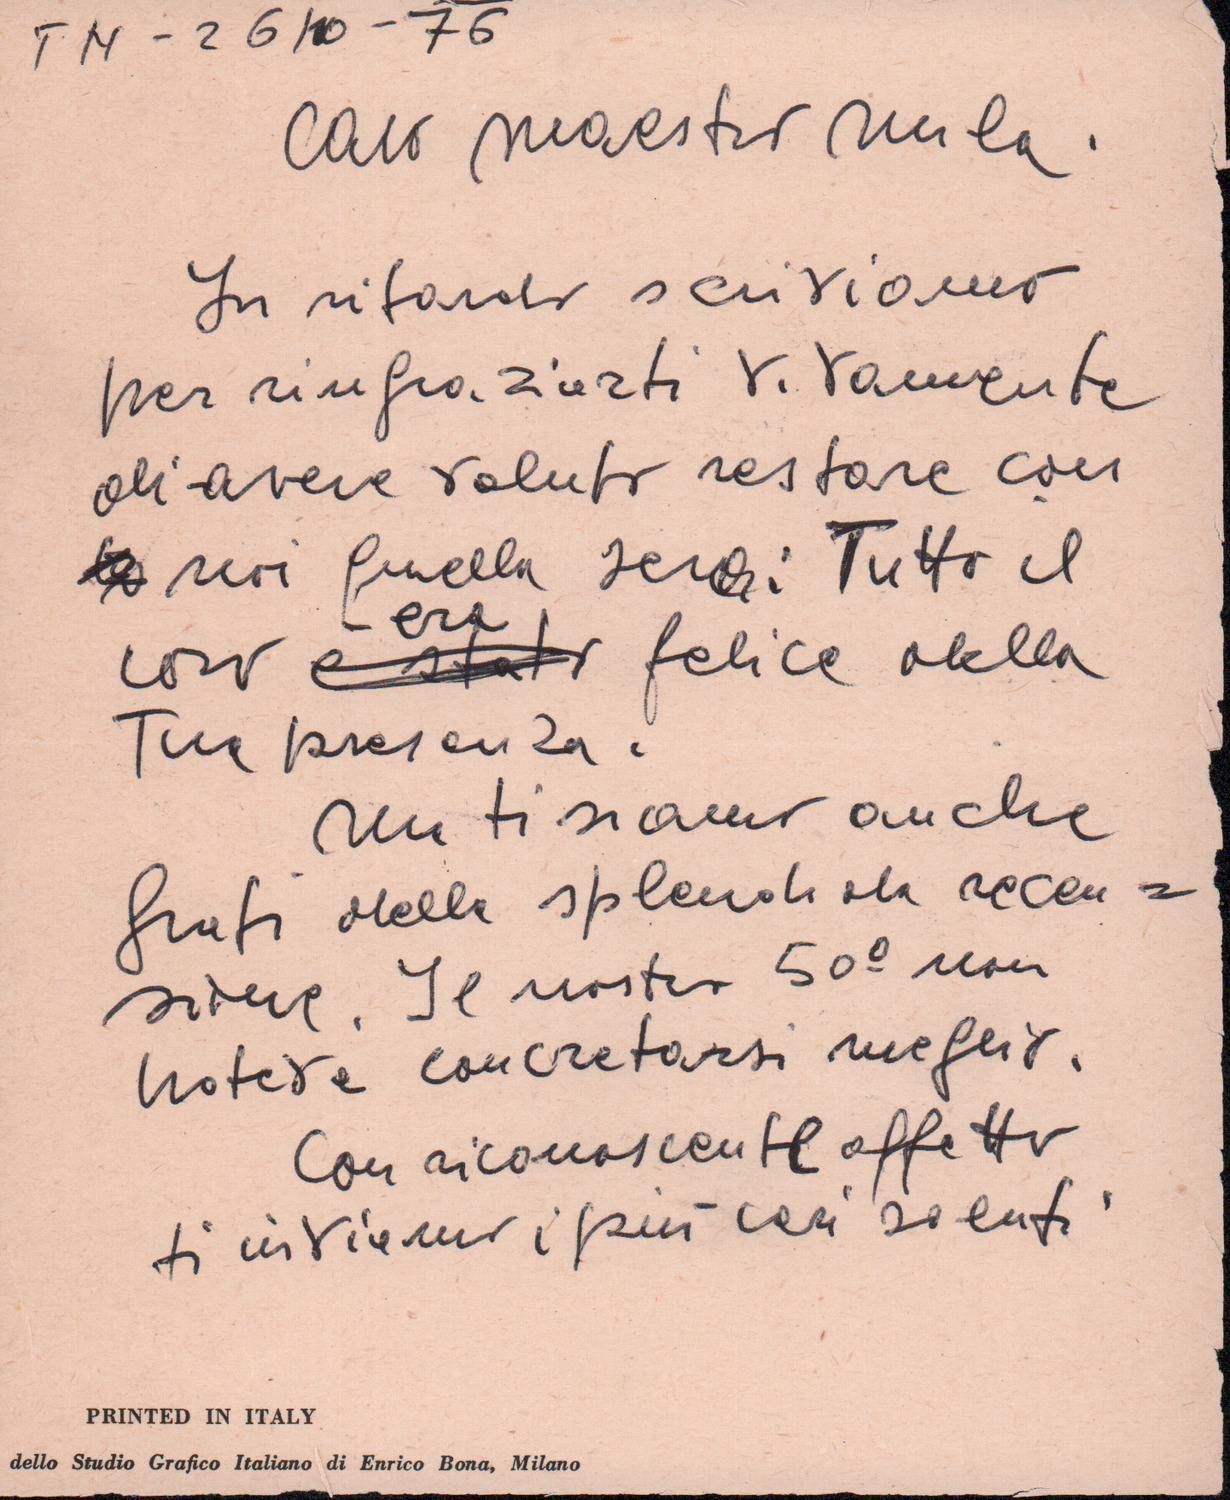 TN - 26/10 - 76
Caro maestro Mila.
In ritardo scriviamo
per ringraziarti vivamente
di avere voluto restare con
noi quella sera: Tutto il
coro era felice della
Tua presenza.
Ma ti siamo anche
grati della splendida recen=
sione. Il nostro 50º non
poteva concretarsi meglio.
Con riconoscente affetto
ti inviamo i più cari saluti
PRINTED IN ITALY
dello Studio Grafico Italiano di Enrico Bona, Milano